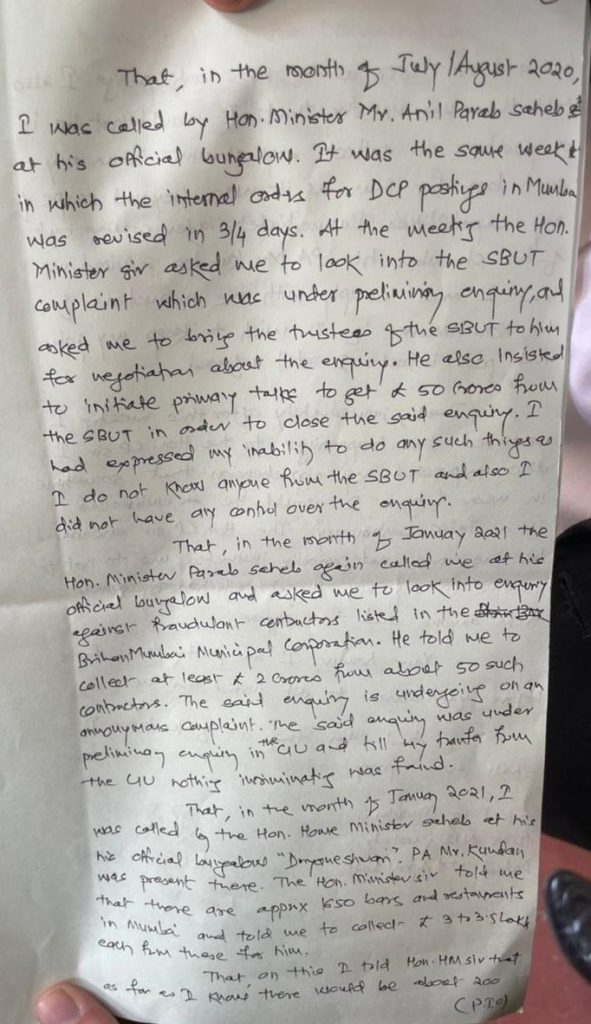 That, in the month of July/August 2020,
I was called by Hon. Minister Mr. Anil Parab saheb
at his official bungalow. It was the same week
in which the internal orders for DCP postings in Mumba
was revised in 3/4 days. At the meeting the Hon.
Minister sir asked me to look into the SBUT
complaint which was under preliminary enquiry, and
asked me to bring the trustees of the SBUT to him
for negotiation about the enquiry. He also Insisted
to initiate primary talks to get ₹ 50 Crores from
the SBUT in order to close the said enquiry. I
had expressed my inability to do any such things as
I do not know anyone from the SBUT and also I
did not have any control over the enquiry.
That, in the month of January 2021 the
Hon. Minister Parab saheb again called me at his
official bungalow and asked me to look into enquiry
against fraudulant contractors listed in the
BrihanMumbai Municipal Corporation. He told me to
collect at least ₹ 2 Crores from about 50 such
contractors. The said enquiry is undergoing on an
annonymous complaint. The said enquiry was under
preliminary enquiry in the CIU and till my tranfer from
the CIU nothing incriminating was found.
That, in the month of January 2021, I
was called by the Hon. Home Minister saheb at his
his official bungalow "Dnyaneshwari". PA Mr. Kundan
was present there. The Hon. Minister sir told me
that there are apprx 1650 bars and restaurents
in Mumbai and told me to collect ₹ 3 to 3.5 Lakh
each from these for him.
That on this I told Hon. HM sir that
as far as I know there would be about 200
(P.T.O)